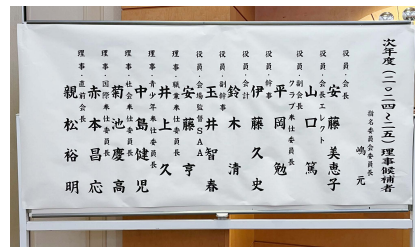 次年度(二〇二四~二五)理事候補者
指名委員会委員長 嶋 元
役員・会長 安藤 美恵子
役員・会長エレクト 山口 篤
役員・副会長 クラブ奉仕委員長 平岡 勉
役員・幹事 伊藤 久史
役員・会計 鈴木 清
役員・副幹事 玉井 智春
役員・会場監督SAA 安藤 亨
理事・職業奉仕委員長 井上 久
理事・青少年奉仕委員長 中島 健児
理事・社会奉仕委員長 菊池 慶高
理事・国際奉仕委員長 赤本 昌応
理事・直前会長 親松 裕明